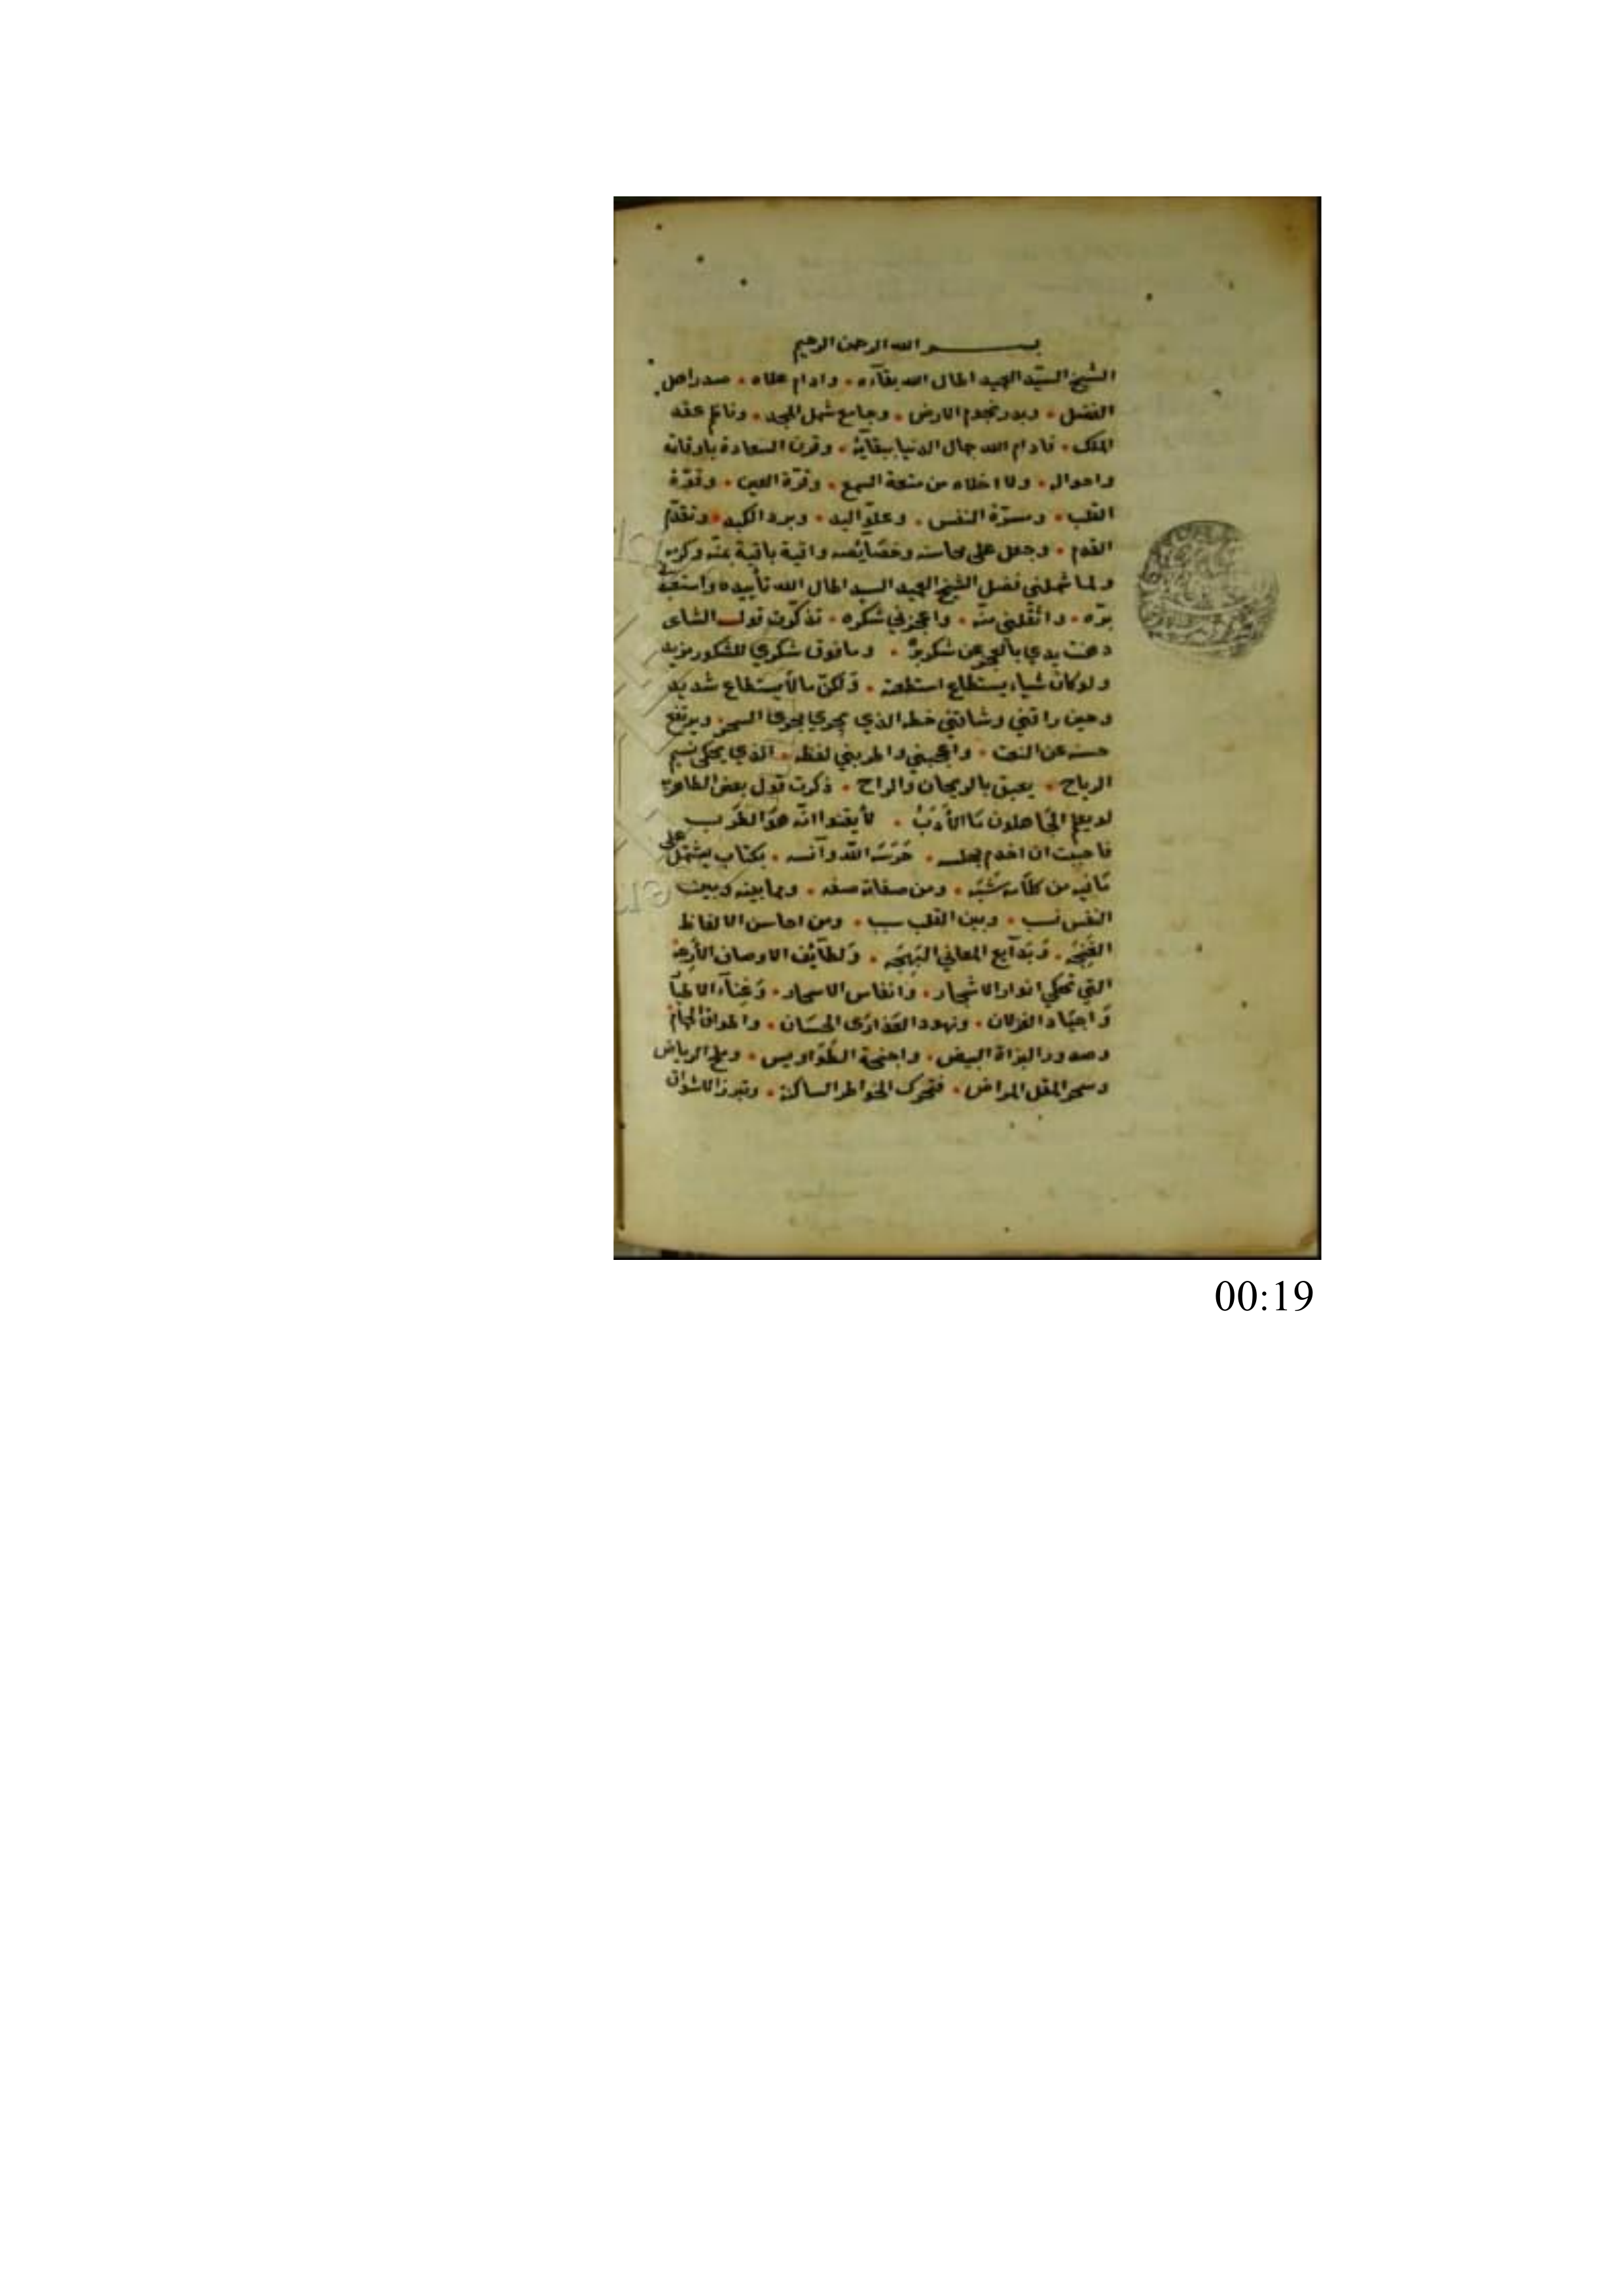 بسم الله الرحمن الرحيم
الشيخ السيّد العميد اطال الله بقآءه • وادام علاه • صدر اهل
الفضل • وبدر نجوم الارض • وجامع شمل المجد • وناظم عقد
الملك • فادام الله جمال الدنيا ببقآئه • وقرن السعادة باوقاته
واحواله • ولا اخلاه من متعة السمع • وقرّة العين • وقوّة
القلب • ومسرّة النفس • وعلوّ اليد • وبرد الكبد • وتقدّم
القدم • وجعل على محاسنه وخصآيصه واقية باقية بمنّه وكرمه
ولما شملني فضل الشيخ العميد السيد اطال الله تأييده واستعبدني
برّه • واثقلني منّه • واعجزني شكره • تذكّرت قول الشاعر
رهنت يدي بالعجز عن شكر برّه • وما فوق شكري للشكور مزيد
ولو كان شياء يستطاع استطعته • ولكنّ ما لا يستطاع شديد
وحين راقني وشاقني خطه الذي يجري مجرى السحر • ويرتفع
حسنه عن النعت • واعجبني واطربني لفظه • الذي يحكي نسيم
الرياح • يعبق بالريحان والراح • ذكرت قول بعض الطاهرية
لو يعلم الجاهلون ما الأدب • لأيقنوا انّه هو الطرب
فاحببت ان اخدم مجلسه • حرسه الله وآنسه • بكتاب يشتمل على
ما فيه من كلامه شبه • ومن صفاته صفه • وما بينه وبين
النفس نسب • وبين القلب سبب • ومن احاسن الالفاظ
الغنجه • وبدآيع المعاني البهجه • ولطآئف الاوصاف الأرجة
التي تحكي انوار الاشجار • وانفاس الاسحار • وغنآء الاطيار
واجياد الغزلان • ونهود العذارى الحسان • واطواق الحمام
وصدور البزاة البيض • واجنحة الطواويس • وملح الرياض
وسحر المقل المراض • فتحرك الخواطر الساكنة • وتبرز الاشواق
00:19